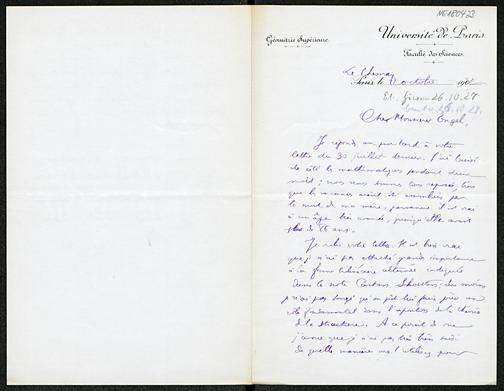 NE180423
Géométrie Supérieure.
Université de Paris
Faculté des Sciences.
Le Chesnay
Paris le 12 octobre 19
26.10.27
Cher Monsieur Engel,
Je réponds un peu tard à votre
lettre du 30 juillet dernier. J'ai laissé
de côté les mathématiques pendant deux
mois; nous nous sommes tous reposés, bien
que les vacances aient été assombries par
la mort de ma mère, parvenue il est vrai
à un âge très avancé, puisqu'elle avait
plus de ans.
Je relis votre lettre. Il est bien vrai
que je n'ai pas attaché grande importance
à la forme trilinéaire alternée indiquée
dans la note Cartan-Schouten; du moins
je n'ai pas songé qu'on pût lui faire jouer un
rôle fondamental dans l'exposition de la théorie
de la structure. A ce point de vue
j'avoue que je n'ai pas très bien saisi
de quelle manière vous l'utilisez pour